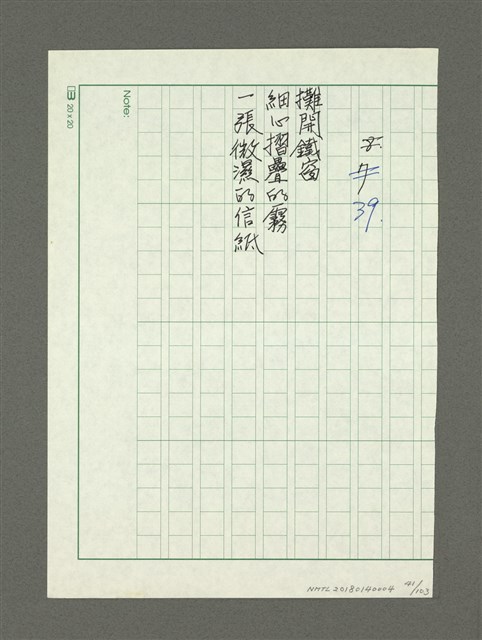 39.
攤開鐵窗
細心摺疊的霧
一張微濕的信紙
Note:
20 x 20
NMTL20180140004 41/103